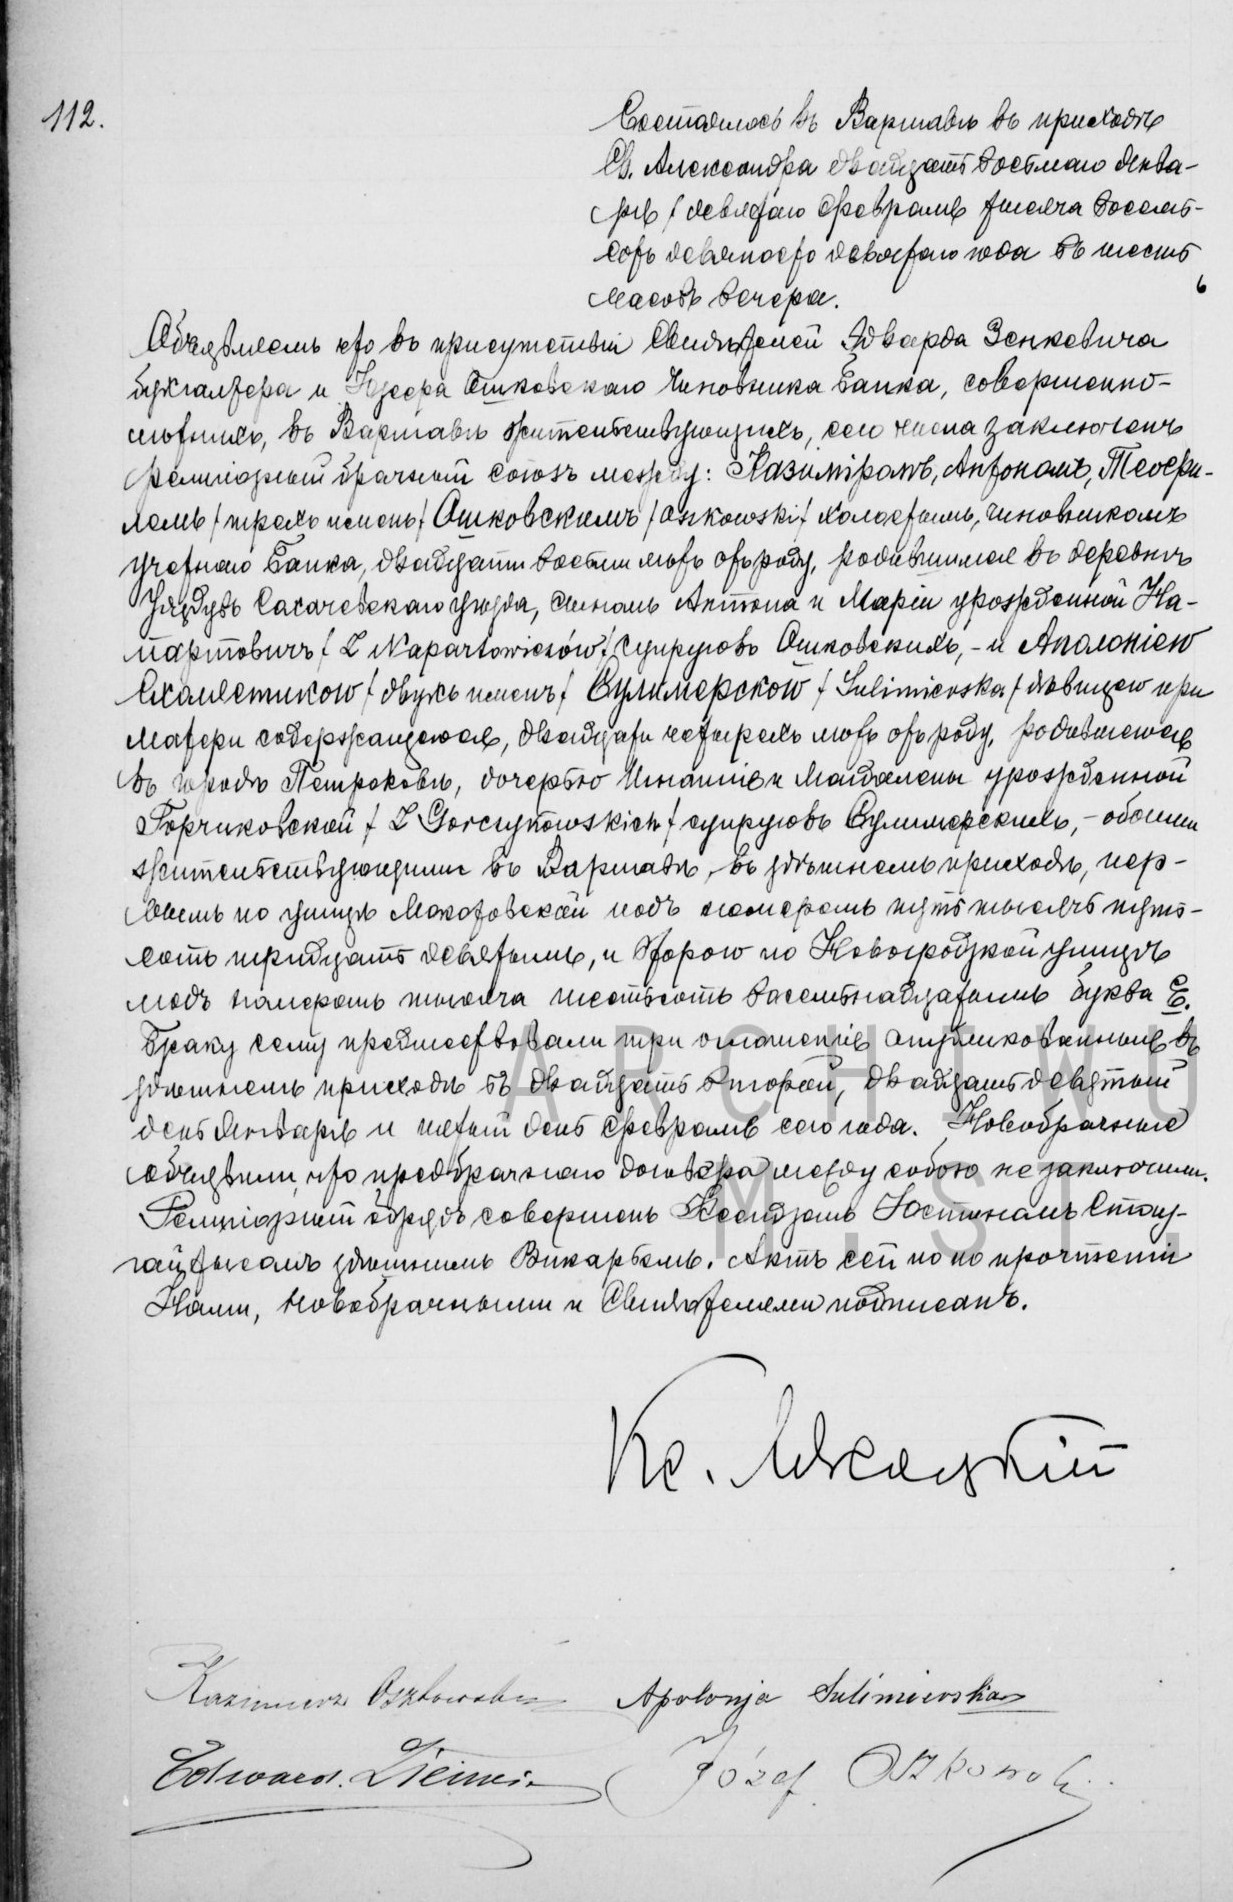 112.
Состоялось въ Варшавѣ въ приходѣ
Св. Александра двадцать восьмаго Янва-
ря / девятаго Февраля тысяча восемь-
сотъ девяносто девятаго года въ шесть
часовъ вечера.
Объявляемъ что въ присутствіи Свидѣтелей Эдварда Зенкевича
бухгалтера и Іузефа Ошковскаго Чиновника Банка, совершенно-
лѣтнихъ, въ Варшавѣ жительствующихъ, сего числа заключенъ
религіозный брачный союзъ между: Казиміромъ, Антономъ, Теофи-
лемъ / трехъ именъ / Ошковскимъ / Oszkowski / холостымъ, чиновникомъ
учетнаго Банка, двадцати восьми лѣтъ отъ роду, родившимся въ деревнѣ
Сохачевскаго уѣзда, сыномъ Антона и Маріи урожденной На-
партовичъ / Z Napartowiczów / супруговъ Ошковскихъ, - и Аполоніею
Схоластикою / двухъ именъ / Сулимерской / Sulimierska / дѣвицею при
матери содержащеюся, двадцати четырехъ лѣтъ отъ роду, родившеюся
въ городѣ Петроковѣ, дочерью Игнатія и Магдалены урожденной
Горчиковской / Z Gorczykowskich / супруговъ Сулимерскихъ, - обоими
жительствующими въ Варшавѣ, въ здѣшнемъ приходѣ, пер-
вымъ по улицѣ Мокотовской подъ номеромъ пять тысячъ пять-
сотъ тридцать девятымъ, и второю по Новогродзкой улицѣ
подъ номеромъ тысяча шестьсотъ восемьнадцатымъ буква Е.
Браку сему предшествовали три оглашенія опубликованныя въ
здѣшнемъ приходѣ въ двадцать второй, двадцать девятый
день Января и пятый день Февраля сего года. Новобрачные
объявили, что предбрачнаго договора между собою не заключили.
Религіозный обрядъ совершенъ Ксендзомъ Юстиномъ
здѣшнимъ Викарьемъ. Актъ сей по прочтеніи
Нами, Новобрачными и Свидѣтелями подписанъ.
Кс.
Kazimierz Oszkowski Apolonja Sulimierska
Edward Józef Oszkowski
ARCHIWU
M.ST.